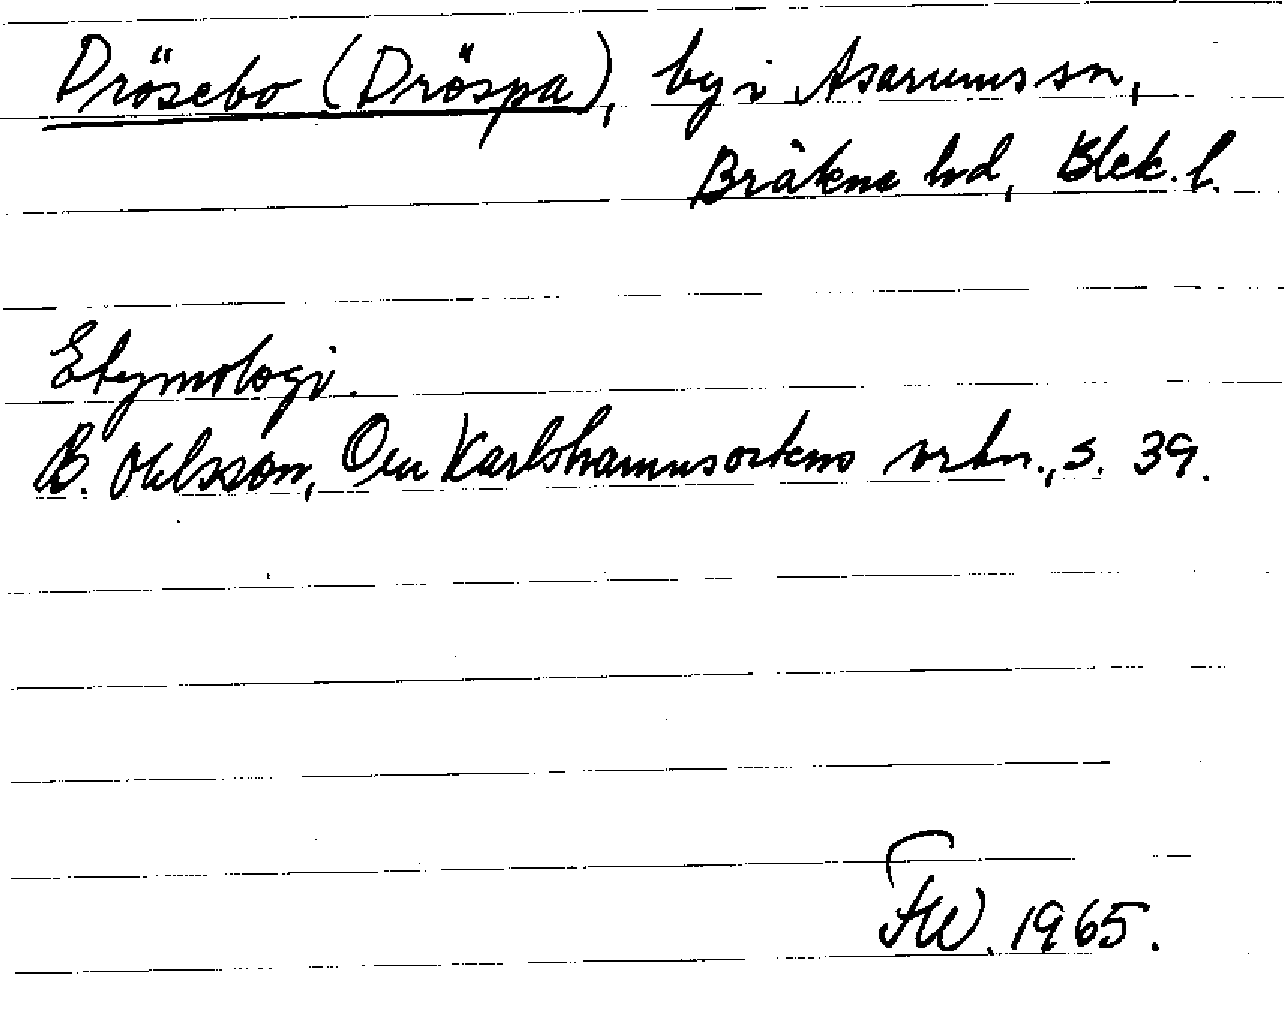 Drösebo (Dröspa), by i Asarums sn,
Bräkne hd, Blek. l.
Etymologi.
B. Ohlsson, Om Karlshamnsortens ortn., s. 39.
FW. 1965.